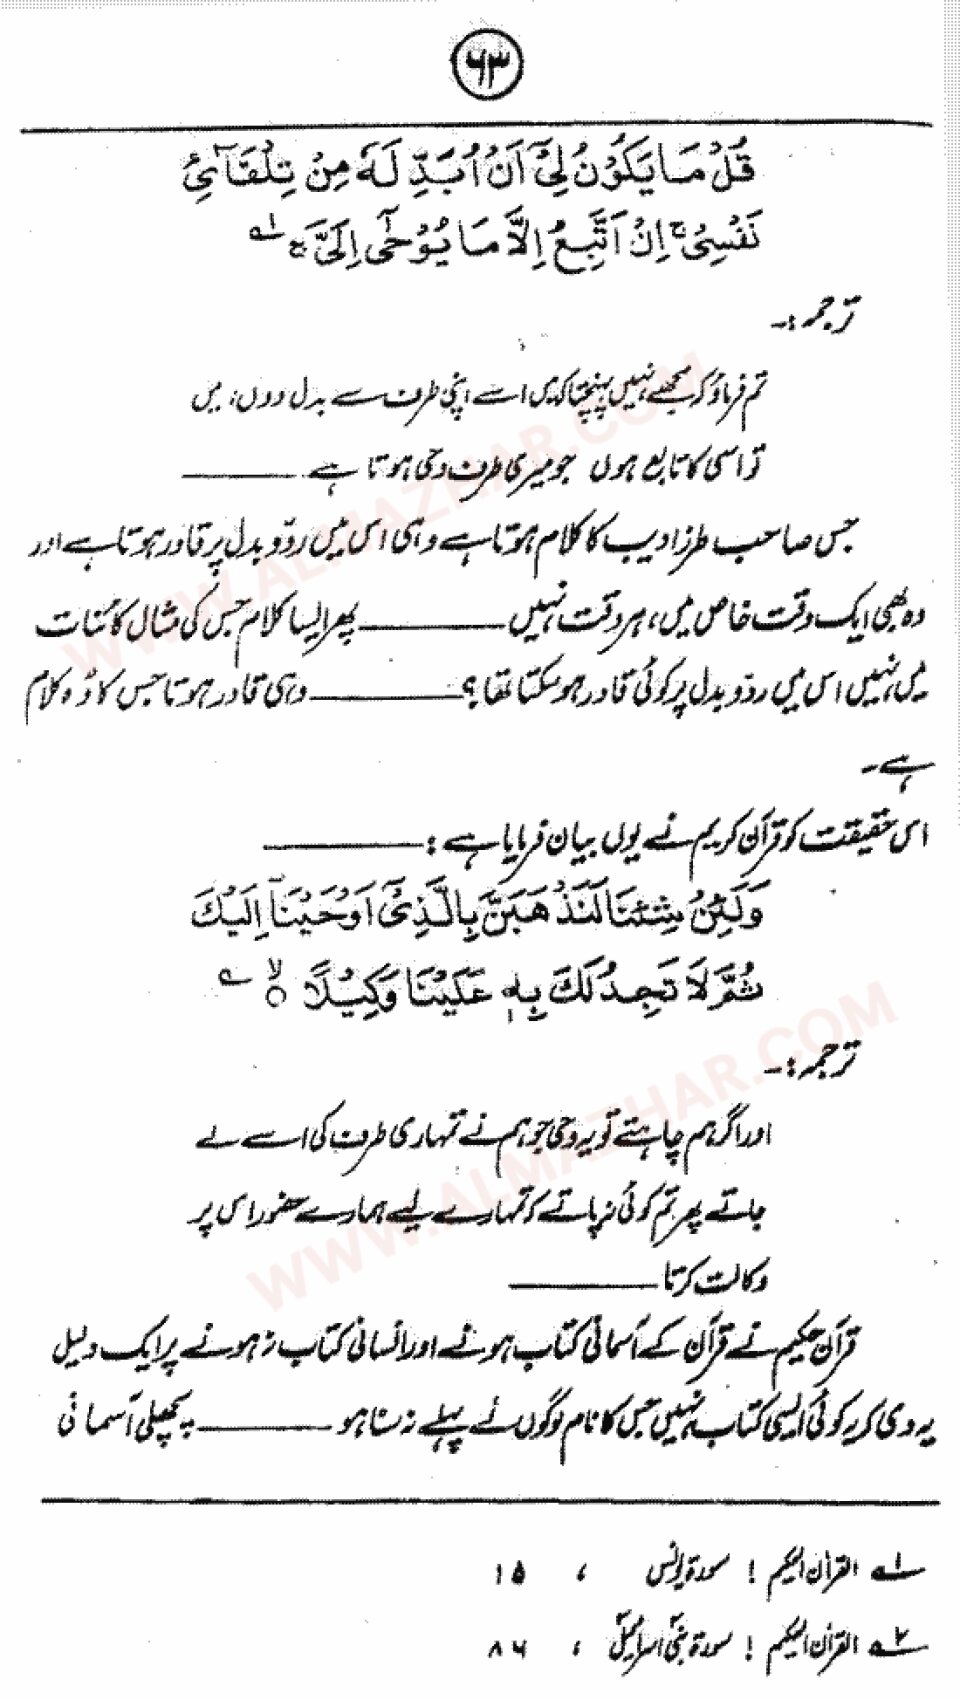 ۶۳
قُلْ مَا يَكُوْنُ لِيْٓ اَنْ اُبَدِّلَهٗ مِنْ تِلْقَآئِ
نَفْسِيْ ۚ اِنْ اَتَّبِعُ اِلَّا مَا يُوْحٰٓى اِلَيَّ ۚ ؎۱
ترجمہ :۔
تم فرماؤ کہ مجھے نہیں پہنچتا کہ میں اسے اپنی طرف سے بدل دوں، میں
تو اسی کا تابع ہوں جو میری طرف وحی ہوتا ہے ـــــــــ
جس صاحب طرز ادیب کا کلام ہوتا ہے وہی اس میں ردّ و بدل پر قادر ہوتا ہے اور
وہ بھی ایک وقت خاص میں، ہر وقت نہیں ـــــــــ پھر ایسا کلام جس کی مثال کائنات
میں نہیں اس میں ردّ و بدل پر کوئی قادر ہو سکتا تھا؟ ـــــــــ وہی قادر ہوتا جس کا وُہ کلام
ہے۔
اس حقیقت کو قرآن کریم نے یوں بیان فرمایا ہے : ـــــــــ
وَلَئِنْ شِئْنَا لَنَذْهَبَنَّ بِالَّذِيْٓ اَوْحَيْنَآ اِلَيْكَ
ثُمَّ لَا تَجِدُ لَكَ بِهٖ عَلَيْنَا وَكِيْلًا ۙ ؎
ترجمہ :۔
اور اگر ہم چاہتے تو یہ وحی جو ہم نے تمہاری طرف کی اسے لے
جاتے پھر تم کوئی نہ پاتے کہ تمہارے لیے ہمارے حضور اس پر
وکالت کرتا ـــــــــ
قرآن حکیم نے قرآن کے آسمانی کتاب ہونے اور انسانی کتاب نہ ہونے پر ایک دلیل
یہ دی کہ یہ کوئی ایسی کتاب نہیں جس کا نام لوگوں نے پہلے نہ سنا ہو ـــــــــ پچھلی آسمانی
؎۱ القرآن الحکیم ! سورۃ یونس ، ۱۵
؎۲ القرآن الحکیم ! سورۃ بنی اسرائیل ، ۸۶
WWW.ALMAZHAR.COM
WWW.ALMAZHAR.COM